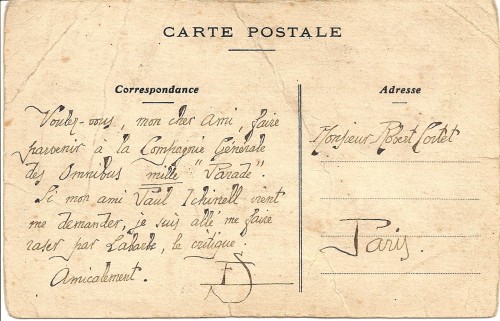 CARTE POSTALE
Correspondance
Voulez-vous, mon cher Ami, faire
parvenir à la Compagnie Générale
des Omnibus mille "Parade".
Si mon ami Paul Ichinell vient
me demander, je suis allé me faire
raser par Labarbe, le critique.
Amicalement.
Adresse
Monsieur Robert
Paris.